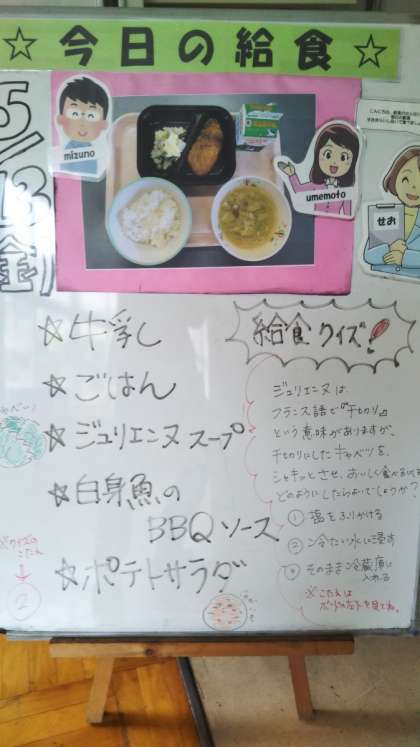 ☆今日の給食☆
5/13
(金)
mizuno
umemoto
せお
☆牛乳
☆ごはん
☆ジュリエンヌスープ
☆白身魚の
BBQソース
☆ポテトサラダ
給食クイズ!
ジュリエンヌは、
フランス語で『千切り』
という意味がありますが、
千切りにしたキャベツを、
シャキッとさせ、おいしく食べるには
どのようにしたらよいでしょうか?
① 塩をふりかける
② 冷たい水に浸す
③ そのまま冷蔵庫に
入れる
※こたえは
ボードの左下を見てね。
※クイズの
こたえ
↓
②